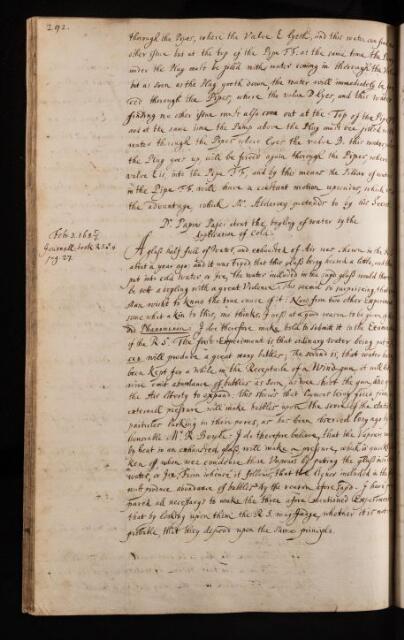 292.
through the Pipes, where the Valve E lyeth, and this water can finde
other issue but at the top of the Pipe FF. at the same time the
under the Plug must be filld with water coming in through the
but as soon as the Plug goeth down, the water will immediately be
ced through the Pipes, where the valve D lyes, and this water
finding no other issue must also come out at the Top of the Pipe
and at the same time the Pump above the Plug must bee filled
water through the Pipes where lyes the valve B. this water
the Plug goes up, will be forced again through the Pipes where
valve E is, into the Pipe FF, and by this means the Pillar of water
in the Pipe FF. will have a constant motion upwards, which
the advantage, which Mr. pretends to by his
Dr. Papins Paper about the boyling of water by the
application of Cold.
Feb: 3. 168
Journall book R.S.
pag. 27.
A glass half full of Water, and exhausted of Air was shewn in the
about a year ago: and it was tryed that this glass being heated a little, and then
put into cold water or Ice, the water included in the sayd glass would then
be set a boyling with a great Violence. This seemd so surprising that
man wisht to know the true cause of it: Now from two other Experiments
some what a kin to this, me thinks, I as a good reason to be given
Phaenomenon. I do therefore make bold to submit it to the Examen
of the R S. The first Experiment is that ordinary water being put
will produce a great many bubles; the second is, that water having
been kept for a while in the Receptacle of a Wind-gun, it will
rive out abundance of bubbles as soon, as wee shoot the gun,
the Air liberty to expand. this shews that Liquors being freed from
externall pressure will make bubbles upon the score of the elastick
particles lurking in their pores, as has been observed long ago by
honorable Mr. R Boyle. I do therefore believe, that the vapours
by heat in an exhausted glass will make a pressure, which is quickly
ken of when wee condense those vapours by putting the glass into
water, or Ice, From whence it follows, that the liquor included in the
must produce abundance of bubbles by the reason afore sayd. I have
pared all necessarys to make the three afore mentioned Experiments
that by looking upon them the R.S. may judge, whether it is not
probable that they depend upon the same principle.